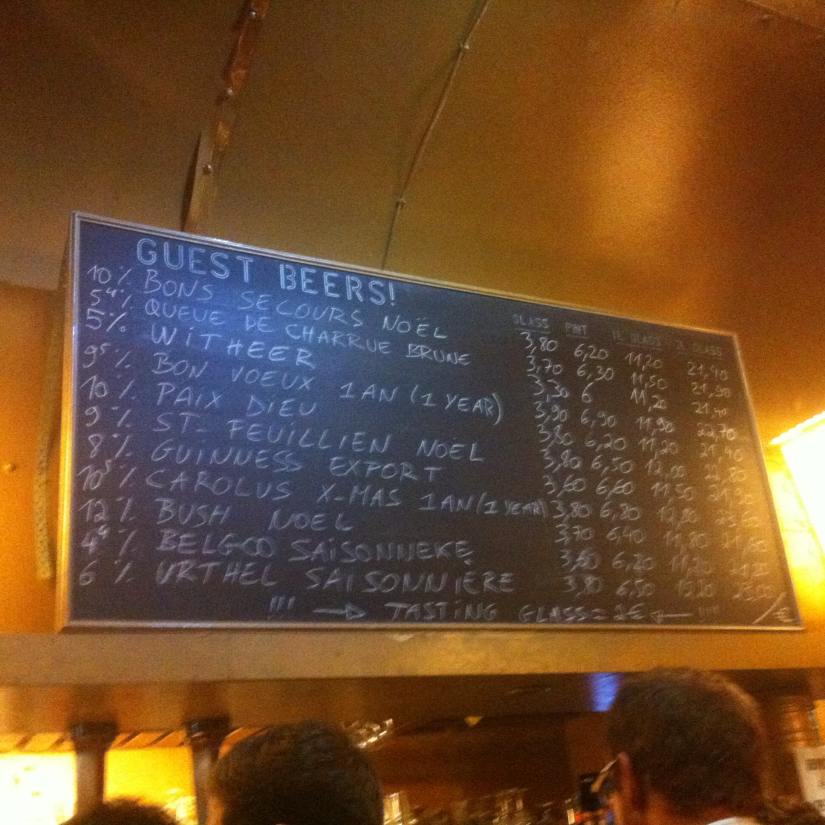 GUEST BEERS!
GLASS PINT 1L GLASS 2L GLASS
10% BONS SECOURS NOËL 3,80 6,20 11,20 21,40
5⁴% QUEUE DE CHARRUE BRUNE 3,70 6,30 11,50 21,90
5% WITHEER 3,30 6 11,20 21,40
9⁵% BON VOEUX 1AN (1 YEAR) 3,90 6,90 11,90 22,70
10% PAIX DIEU 3,80 6,20 11,20 21,40
9% ST-FEUILLIEN NOEL 3,80 6,50 12,00
8% GUINNESS EXPORT 3,60 6,60 11,50 21,30
10⁵% CAROLUS X-MAS 1AN (1 YEAR) 3,80 6,80 12,80
12% BUSH NOEL 3,70 6,40 11,80
4⁴% BELGOO SAISONNEKE 3,60 6,20 11,20
6% URTHEL SAISONNIÈRE 3,80 6,50 25,00
!!! → TASTING GLASS = 2€ ← !!!! /€